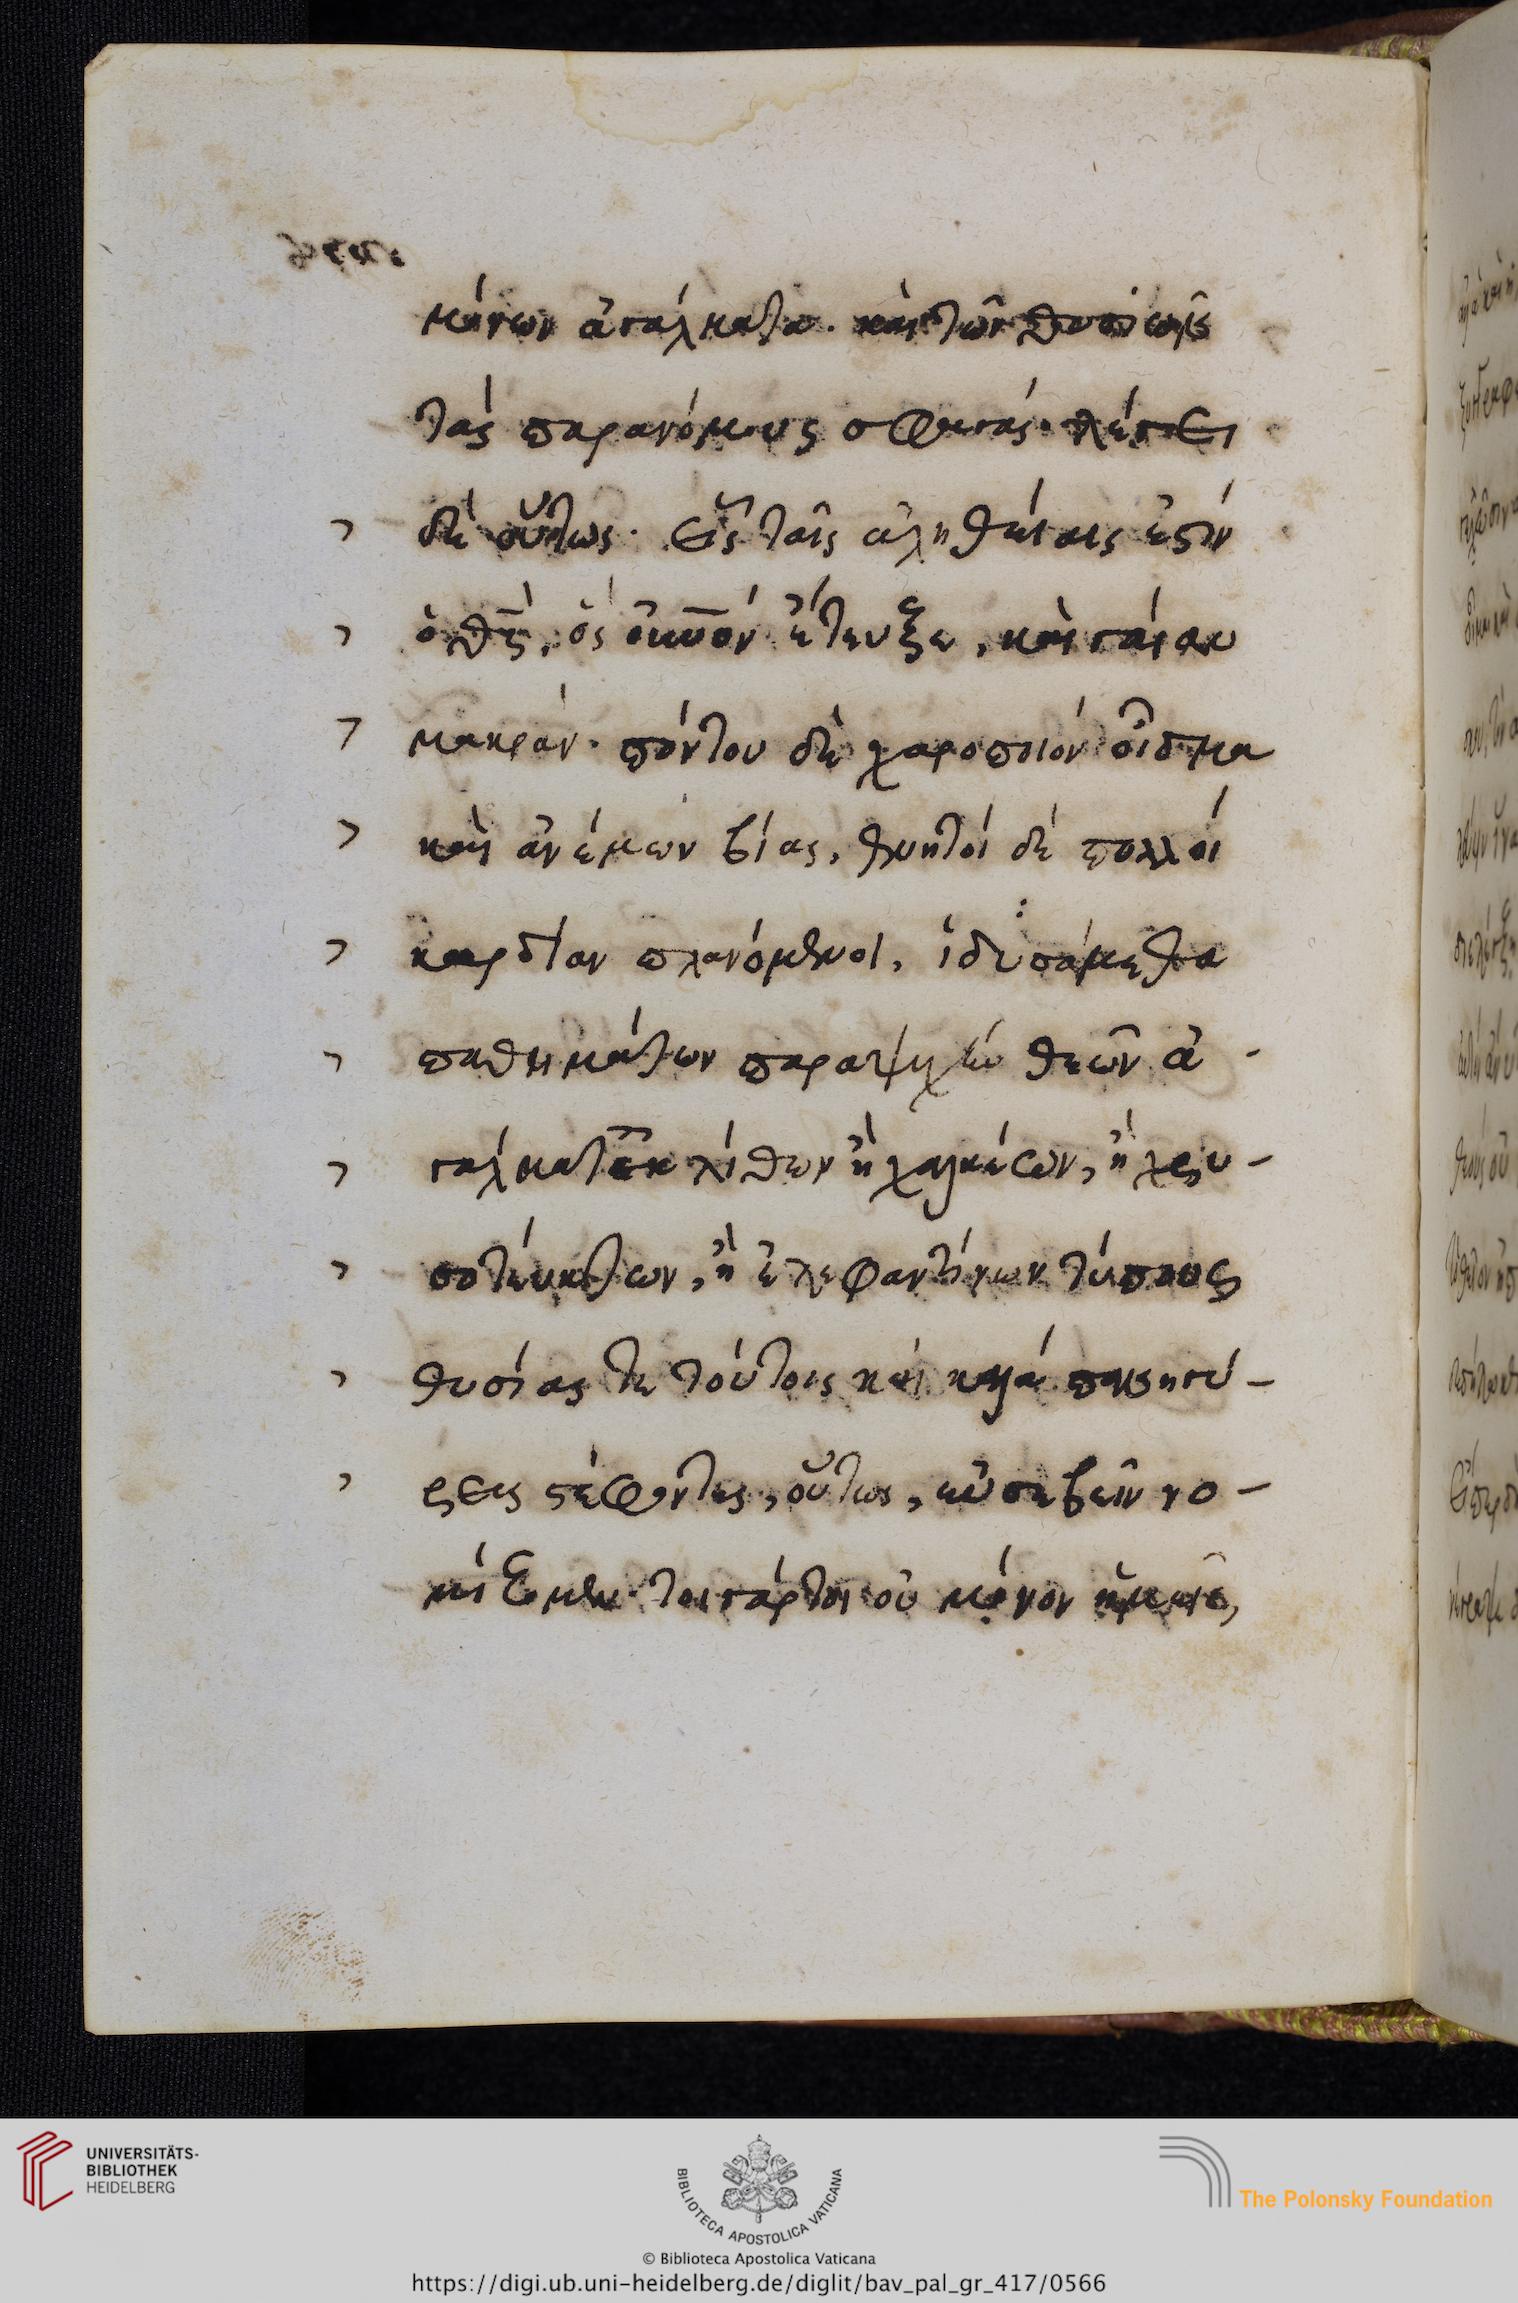 μένων ἀγάλματα. καὶ τῶν θυσιῶν
τὰς παρανόμους σφαγάς. λέγει
δὲ οὕτως. Εἷς ταῖς ἀληθείαις ἐστὶν
ὁ θς, ὃς οὐνον ἔτευξε, καὶ γαῖαν
μακρὰν. πόντου δὲ χαροποιὸν οἶδμα
καὶ ἀνέμων βίας, θνητοὶ δὲ πολλοὶ
καρδίαν πλανόμενοι, ἱδρυσάμεθα
πημάτων παραψυχὴν θεῶν ἀ-
γάλματ' ἐκ λίθων ἢ χαλκέων, ἢ χρυ-
σοτεύκτων, ἢ ἐλεφαντίνων τύπους
θυσίας τε τούτοις καὶ καλὰς πανηγύ-
ρεις στέφοντες, οὕτως, εὐσεβεῖν νο-
μίζομεν. τοιγάρτοι οὐ μόνον ἡμεῖς,
UNIVERSITÄTS-
BIBLIOTHEK
HEIDELBERG
BIBLIOTECA APOSTOLICA VATICANA
The Polonsky Foundation
© Biblioteca Apostolica Vaticana
https://digi.ub.uni-heidelberg.de/diglit/bav_pal_gr_417/0566